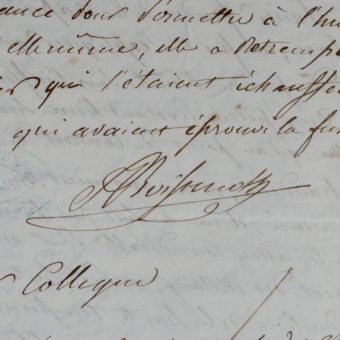 ance pour permettre à l'hu
elle même, elle a retrempé
qui s'étaient échauffé
qui avaient éprouvé la fu
Collegue